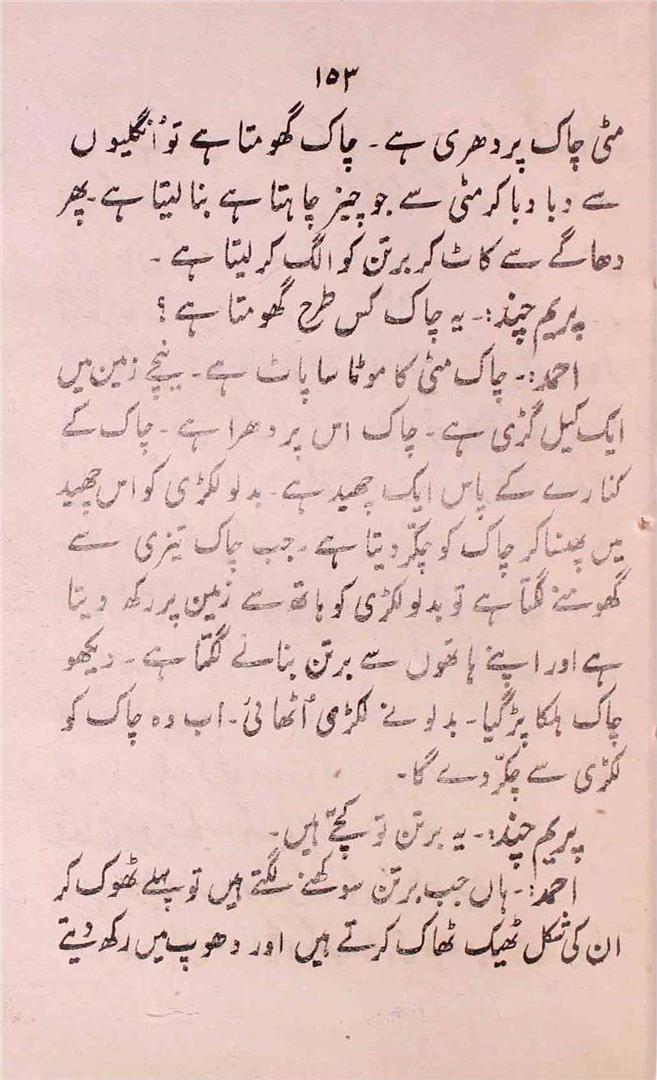 ۱۵۳
مٹی چاک پر دھری ہے۔ چاک گھومتا ہے تو اُنگلیوں
سے دبا دبا کر مٹی سے جو چیز چاہتا ہے بنا لیتا ہے۔ پھر
دھاگے سے کاٹ کر برتن کو الگ کر لیتا ہے۔
پریم چند:۔ یہ چاک کس طرح گھومتا ہے؟
احمد:۔ چاک مٹی کا موٹا سا پاٹ ہے۔ نیچے زمین میں
ایک کیل گڑی ہے۔ چاک اس پر دھرا ہے۔ چاک کے
کنارے کے پاس ایک چھید ہے۔ بدلو لکڑی کو اس چھید
میں پھنسا کر چاک کو چکّر دیتا ہے۔ جب چاک تیزی سے
گھومنے لگتا ہے تو بدلو لکڑی کو ہاتھ سے زمین پر رکھ دیتا
ہے اور اپنے ہاتھوں سے برتن بنانے لگتا ہے۔ دیکھو
چاک ہلکا پڑ گیا۔ بدلو نے لکڑی اُٹھائی۔ اب وہ چاک کو
لکڑی سے چکّر دے گا۔
پریم چند:۔ یہ برتن تو کچّے ہیں۔
احمد:۔ ہاں جب برتن سوکھنے لگتے ہیں تو پہلے ٹھوک کر
ان کی شکل ٹھیک ٹھاک کرتے ہیں اور دھوپ میں رکھ دیتے